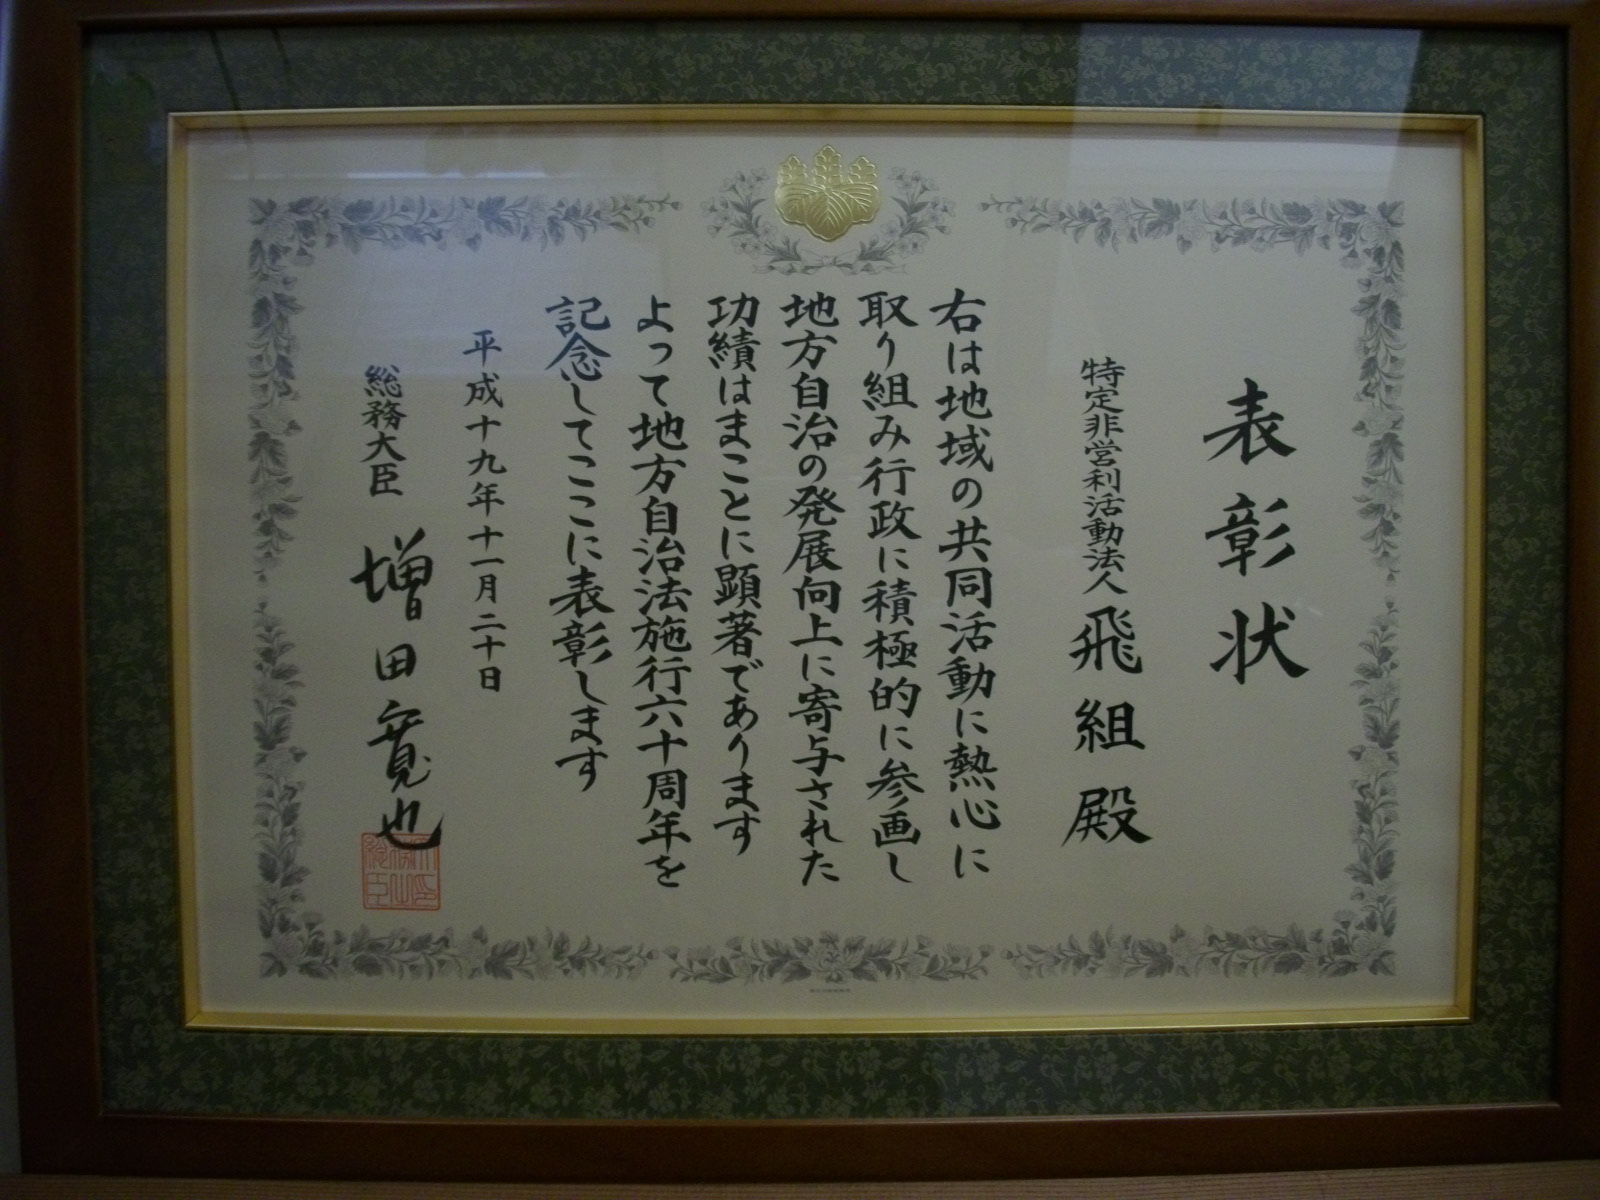 表彰状
特定非営利活動法人 飛組殿
右は地域の共同活動に熱心に
取り組み行政に積極的に参画し
地方自治の発展向上に寄与された
功績はまことに顕著であります
よって地方自治法施行六十周年を
記念してここに表彰します
平成十九年十一月二十日
総務大臣 増田寛也